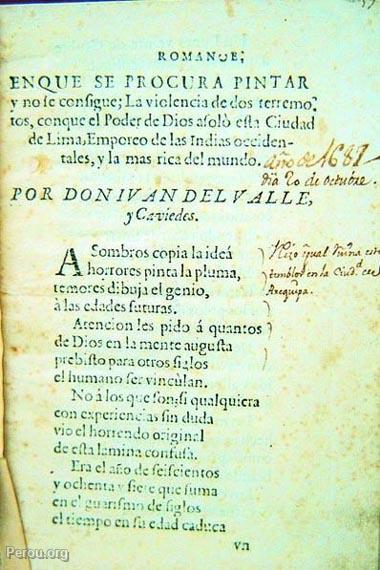 ROMANCE,
ENQUE SE PROCURA PINTAR
y no se consigue; La violencia de dos terremo-
tos, conque el Poder de Dios asolò esta Ciudad
de Lima, Emporeo de las Indias occiden-
tales, y la mas rica del mundo.
año de 1687
dia 20 de octubre.
POR DON IVAN DEL VALLE,
y Caviedes.
ASombros copia la ideá
horrores pinta la pluma,
temores dibuja el genio,
à las edades futuras.
Hizo igual Ruina este
temblor en la Ciud.d de
Arequipa.
Atencion les pido á quantos
de Dios en la mente augusta
prebisto para otros siglos
el humano ser vincùlan.
No à los que son, si qualquiera
con experiencias sin duda
vio el horrendo original
de esta lamina confusa.
Era el año de seiscientos
y ochenta y siete que suma
en el guarismo de siglos
el tiempo en su edad caduca
vn
Perou.org